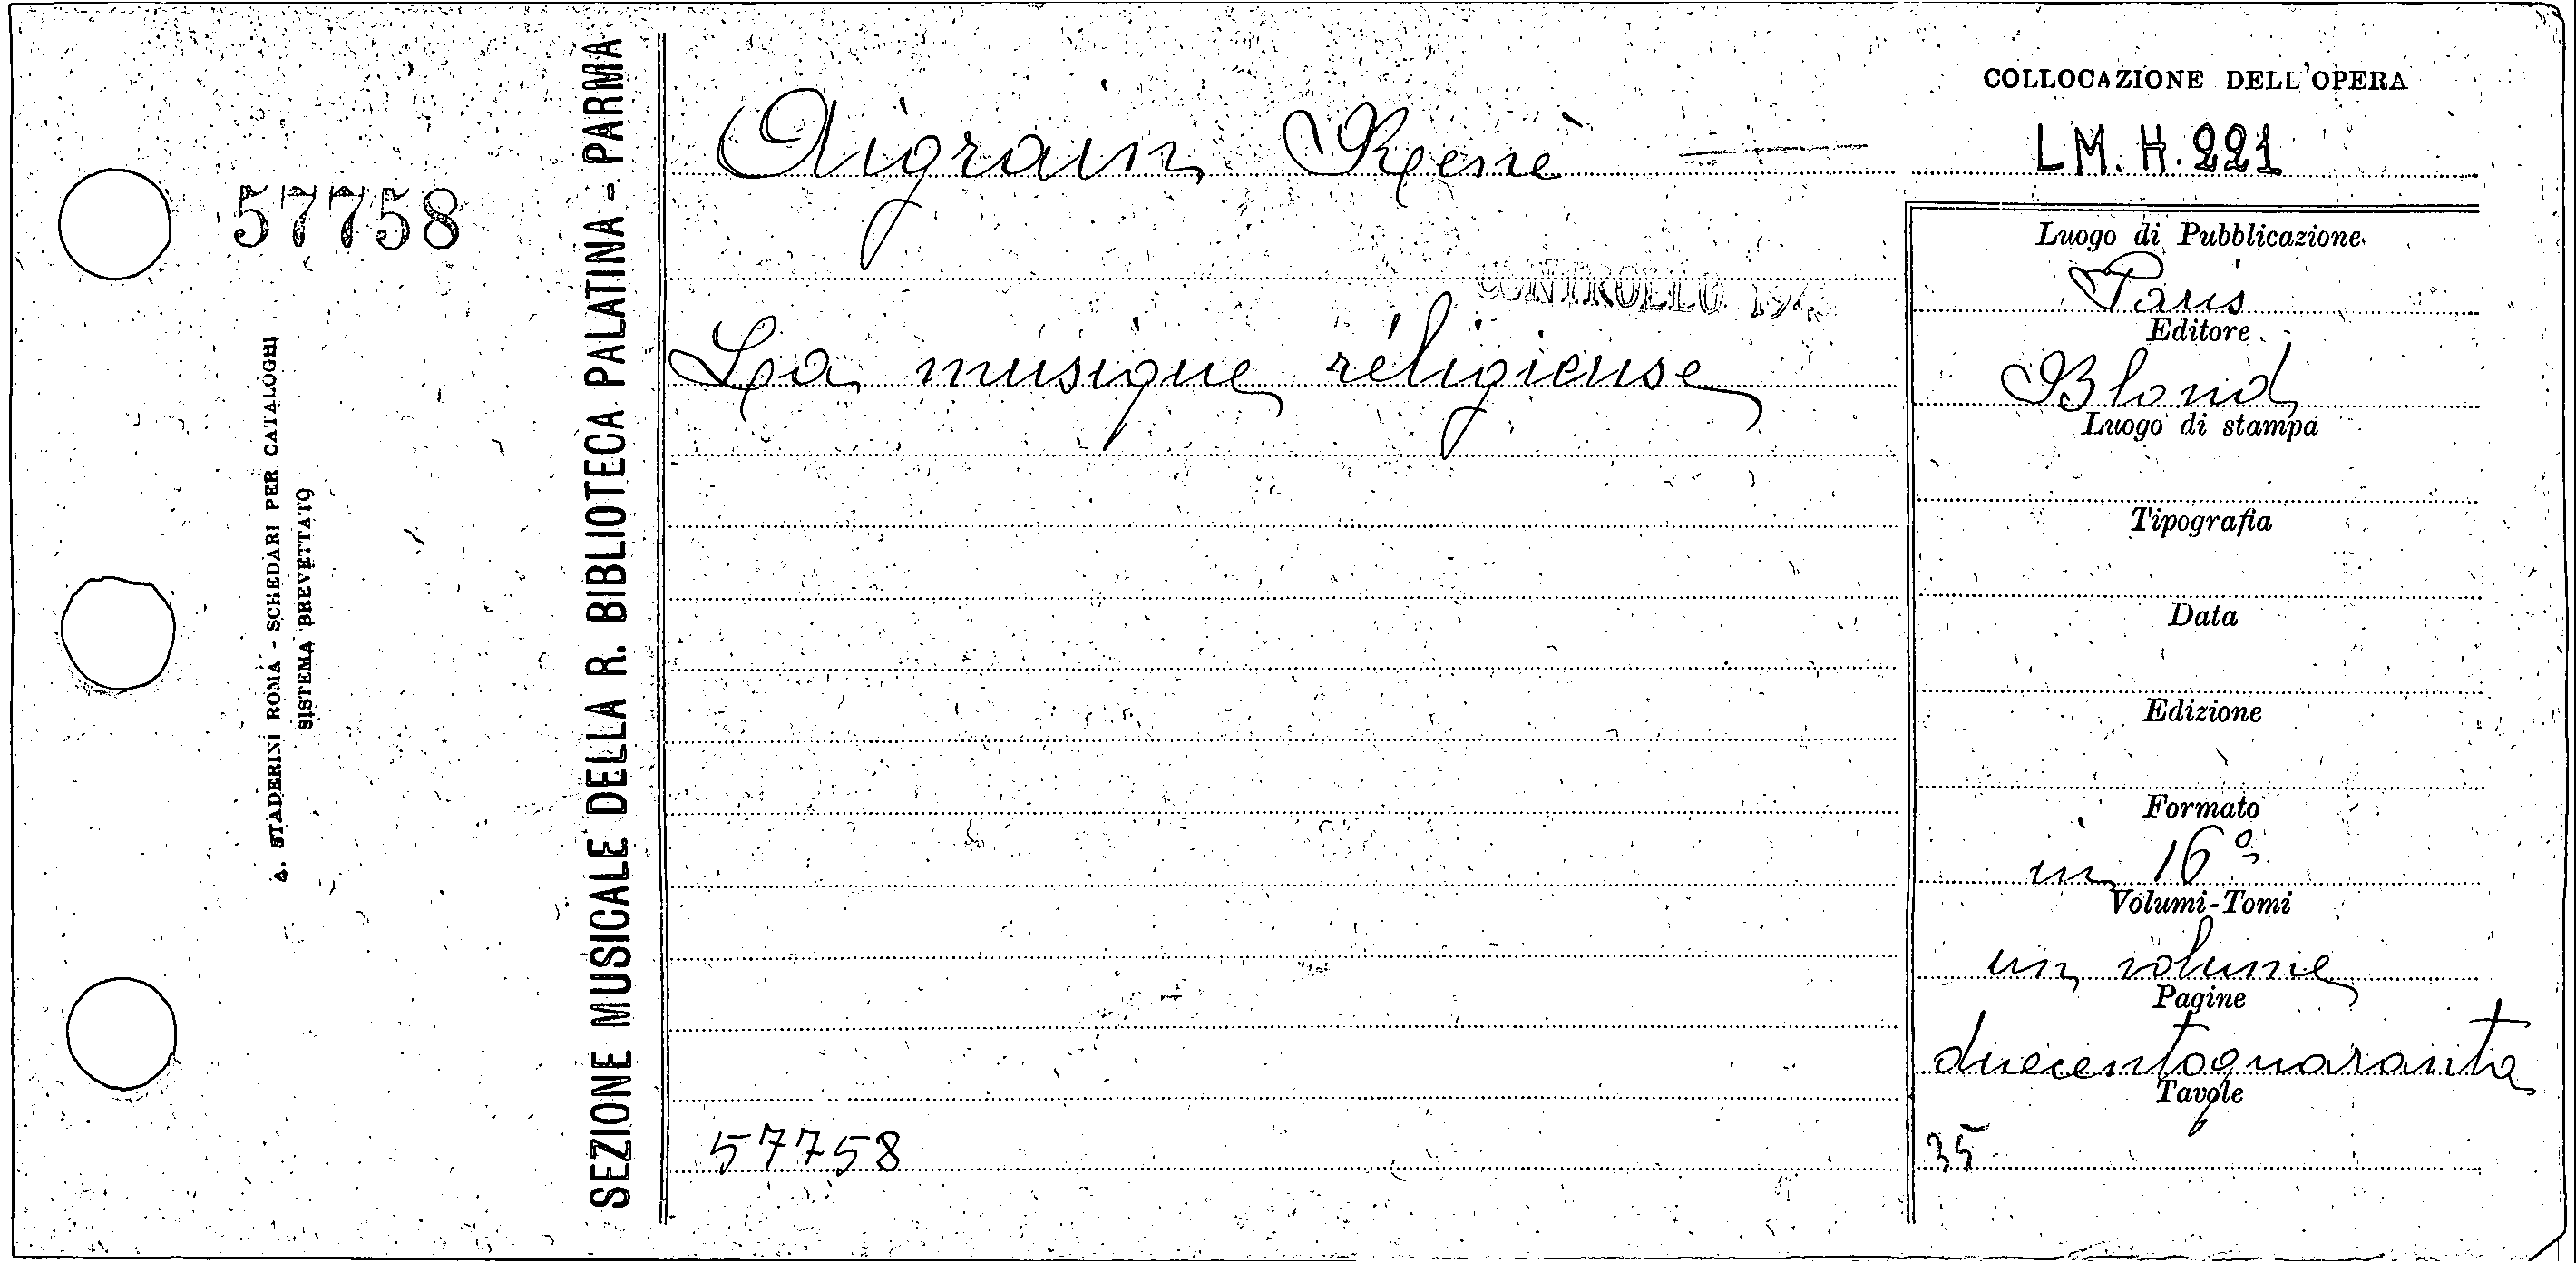 57758
A. STADERINI ROMA - SCHEDARI PER CATALOGHI
SISTEMA BREVETTATO
SEZIONE MUSICALE DELLA R. BIBLIOTECA PALATINA - PARMA
Aigrain Renè
CONTROLLO
La musique réligieuse
57758
COLLOCAZIONE DELL'OPERA
LM. H. 221
Luogo di Pubblicazione
Paris
Editore
Bloud
Luogo di stampa
Tipografia
Data
Edizione
Formato
in 16º
Volumi-Tomi
un volume
Pagine
duecentoquaranta
Tavole
35